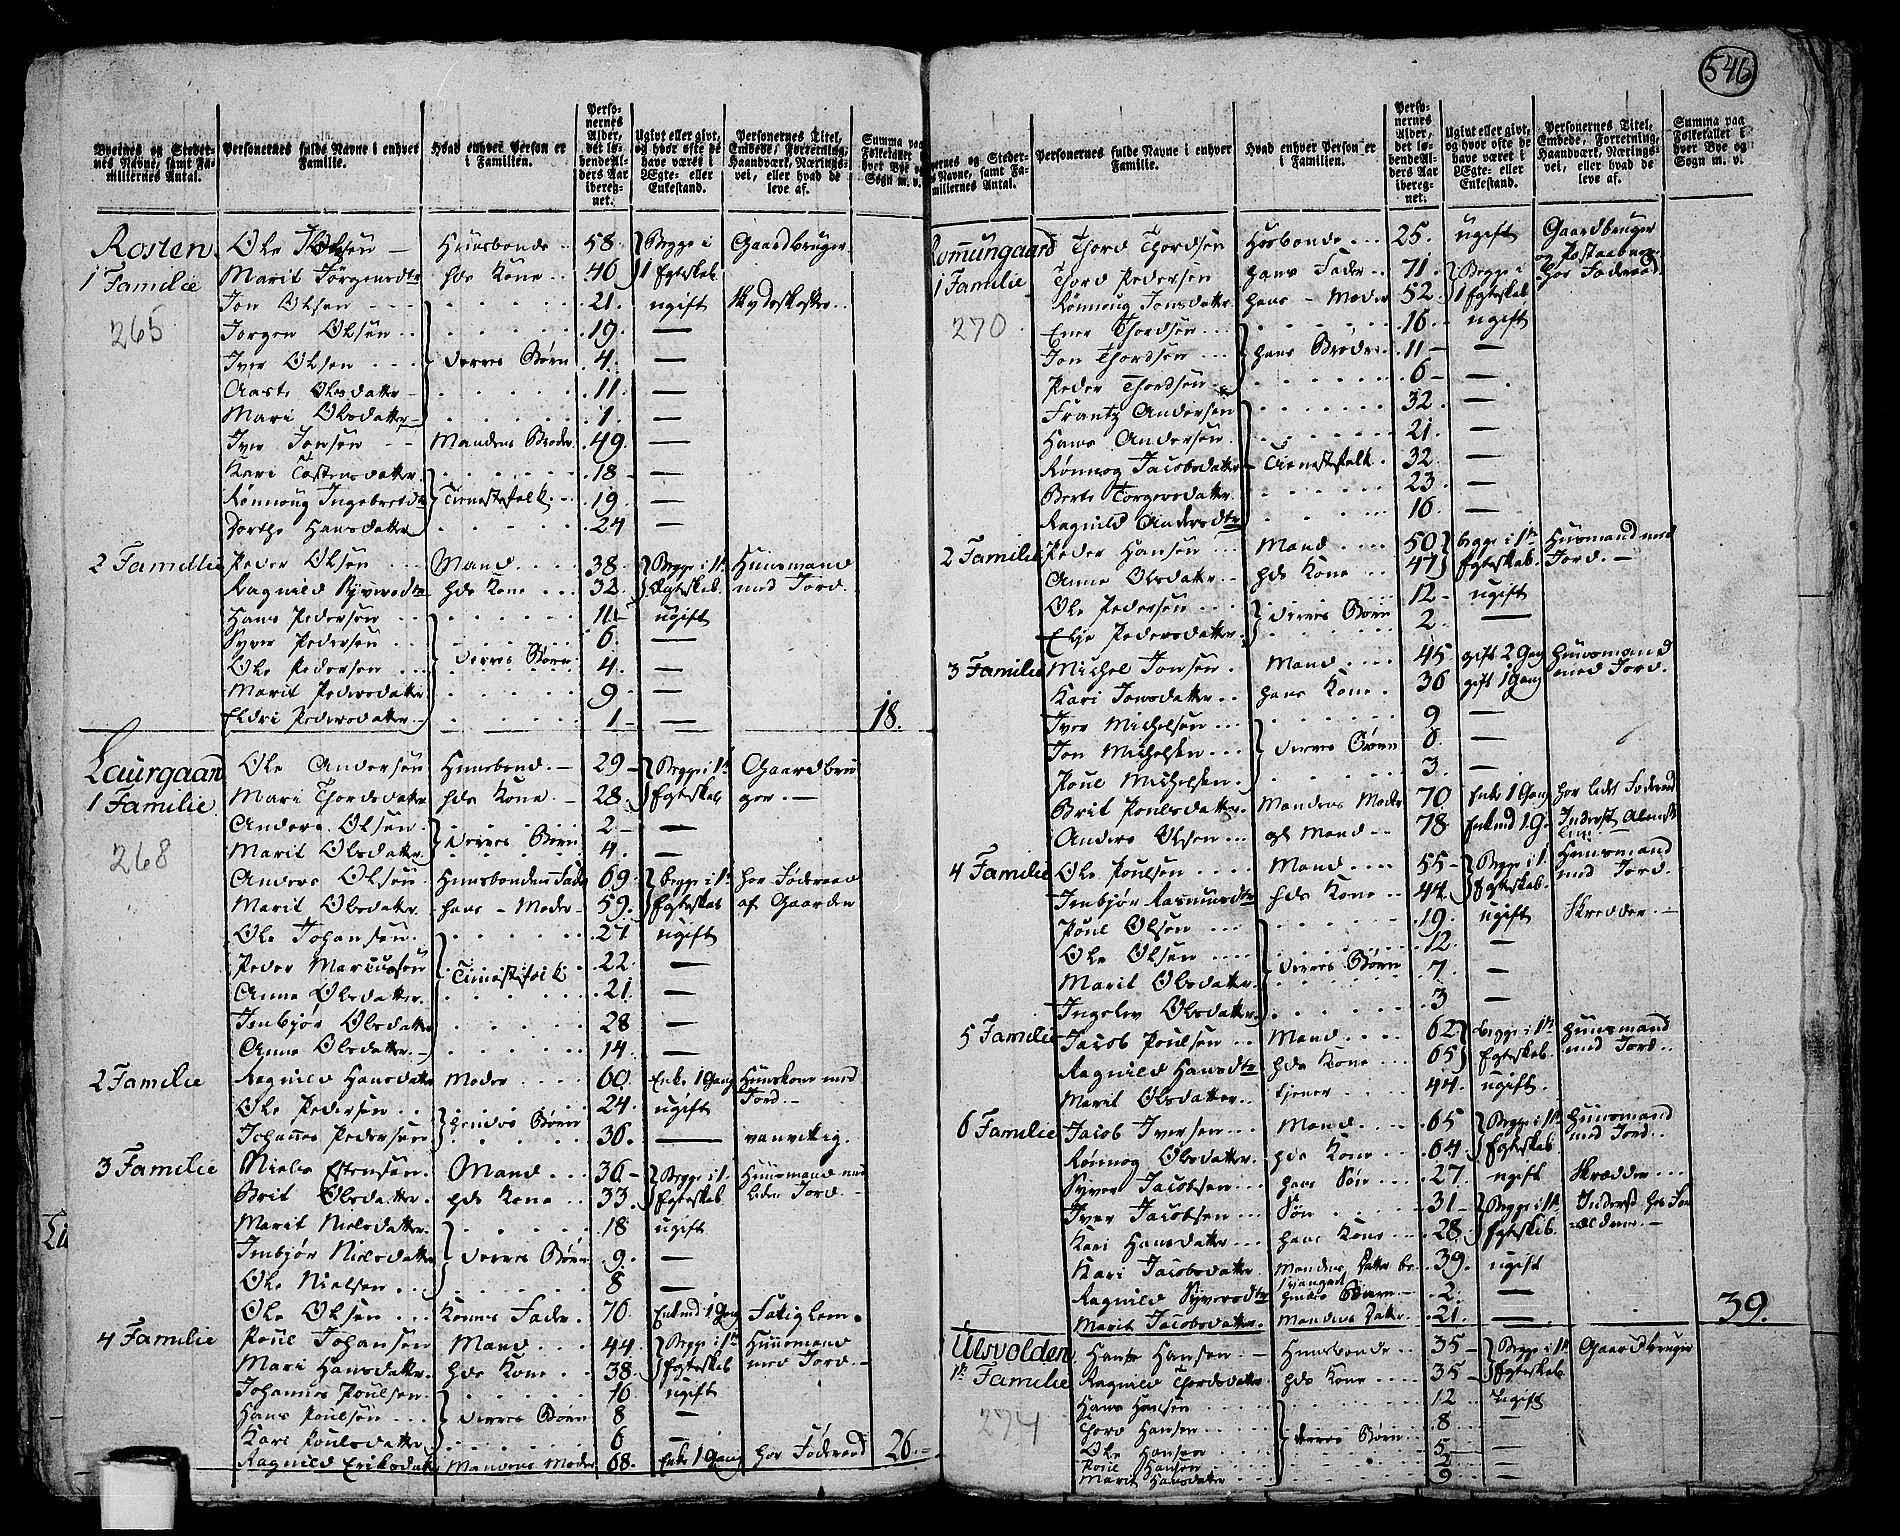 546
Byernes og Steder-
nes Navne, samt Fa-
miliernes Antal.
Personernes fulde Navne i enhver
Familie.
Hvad enhver Person er
i Familien.
Perso-
nernes
Alder,
det lø-
bende Al-
ders Aar
ibereg-
net.
Ugivt eller givt,
og hvor ofte de
have været i
Ægte- eller
Enkestand.
Personernes Titel,
Embede, Forretning,
Haandværk, Nærings-
vei, eller hvad de
leve af.
Summa paa
Rosten Ole Olsen Huusbonde 58 Begge i Gaardbruger
1 Familie Marit Jørgensdtr hds Kone 46 1 Egteskab
Jon Olsen 21 ugift Skydeskafter
265 Jørgen Olsen 19 —
Iver Olsen deres Børn 4 —
Aaste Olsdatter 11 —
Mari Olsdatter 1 —
Iver Jonsen Mandens Broder 49 —
Kari Tostensdatter 18 —
Rønnoug Ingebretsdtr Tienestefolk 19 —
Dorthe Hansdatter 24 —
2 Familie Peder Olsen Mand 38 Begge i 1te Huusmand
Ragnild Syversdtr hds Kone 32 Egteskab med Jord
Hans Pedersen 11 ugift
Syver Pedersen 6 —
Ole Pedersen deres Børn 4 —
Marit Pedersdatter 9 —
Eldri Pedersdatter 1 — 18.
Laurgaard Ole Andersen Huusbond 29 Begge i 1te Gaardbru
1 Familie Mari Thordsdatter hds Kone 28 Egteskab ger
Anders Olsen 2 —
268 Marit Olsdatter deres Børn 4 —
Anders Olsen Huusbondens Fader 69 begge i 1te har Føderaad
Marit Olsdatter hans Moder 59 Egteskab af Gaarden
Ole Johansen 27 ugift
Peder Marcusen Tienestefolk 22 —
Anne Olsdatter 21 —
Imbjør Olsdatter 28 —
Anne Olsdatter 14 —
2 Familie Ragnild Hansdatter Moder 60 Enke 1 Gang Huuskone med
Ole Pedersen 24 ugift Jord
Johannes Pedersen hendes Børn 36 — vanvittig.
3 Familie Niels Estensen Mand 36 Begge i 1te Huusmand med
Brit Olsdatter hds Kone 33 Egteskab liden Jord
Marit Nielsdatter 18 ugift
Imbjør Nielsdatter deres Børn 9 —
Ole Nielsen 8 —
Ole Olsen Konens Fader 76 Enkmd 1 Gang Fattiglem
4 Familie Poul Johansen Mand 44 Begge i 1te Huusmand
Mari Hansdatter hds Kone 38 Egteskab med Jord
Johannes Poulsen 16 ugift
Hans Poulsen deres Børn 8 —
Kari Poulsdatter 6 —
Ragnild Eriksdatter Mandens Moder 68 Enke 1 Gang har Føderaad 26
Personernes fulde Navne i enhver
Familie.
Hvad enhver Person er
i Familien.
Perso-
nernes
Alder,
det lø-
bende Al-
ders Aar
ibereg-
net.
Ugivt eller givt,
og hvor ofte de
have været i
Ægte- eller
Enkestand.
Personernes Titel,
Embede, Forretning,
Haandværk, Nærings-
vei, eller hvad de
leve af.
Summa paa
Folketallet i
hver Bye og
Sogn m. v.
Romungaard Thord Thordsen Huusbonde 25 ugift Gaardbruger
1 Familie Thord Pedersen hans Fader 71 Begge i
Rønnoug Jonsdatter hans Moder 52 1 Egteskab
270 Thordsen 16 ugift
Jon Thordsen hans Brødre 11 —
Peder Thordsen 6 —
Frantz Andersen 32 —
Hans Andersen 21 —
Rønnog Jacobsdatter Tienestefolk 32 —
Berte Torgersdatter 23 —
Ragnild Andersdtr 16 —
2 Familie Peder Hansen Mand 50 begge i 1te Huusmand med
Anne Olsdatter hds Kone 47 Egteskab Jord
Ole Pedersen 12 ugift
Pedersdatter deres Børn 2 —
3 Familie Michel Jonsen Mand 45 gift 2 Gang Huusmand
Kari Jonsdatter hans Kone 36 gift 1 Gang med Jord
Iver Michelsen 9 —
Jon Michelsen deres Børn 8 —
Poul Michelsen 3 —
Brit Poulsdatter Mandens Moder 70 Enke 1 Gang
Anders Olsen gl Mand 78 Enkmd 1 G Inderst
4 Familie Ole Poulsen Mand 55 Begge i 1 Huusmand
Imbjør Rasmusdtr hds Kone 44 Egteskab med Jord
Poul Olsen 19 ugift Skredder
Ole Olsen 12 —
Marit Olsdatter deres Børn 7 —
Olsdatter 3 —
5 Familie Jacob Poulsen Mand 62 begge i 1te Huusmand
Ragnild Hansdtr hds Kone 65 Egteskab med Jord
Marit Olsdatter tjener 44 ugift
6 Familie Jacob Iversen Mand 65 Begge i 1te Huusmand
Rønnog Olsdatter hds Kone 64 Egteskab med Jord
Syver Jacobsen hans Søn 27 ugift Skrædder
Iver Jacobsen Søn 31 Begge i 1te Inderst hos For
Kari Hansdatter hans Kone 28 Egteskab ældrene
Kari Jacobsdatter Mandens Datter 39 ugift
Ragnild Syversdtr 2 —
Marit Jacobsdatter Mandens Datter 21 — 39.
Ulsvolden Hans Hansen Huusbonde 35 Begge i 1te Gaardbruger
1te Familie Ragnild Thordsdatter hds Kone 35 Egteskab
Hans Hansen 12 Ugift
274 Thord Hansen 8 —
Ole Hansen deres Børn 5 —
Poul Hansen 2 —
Marit Hansdatter 9 —